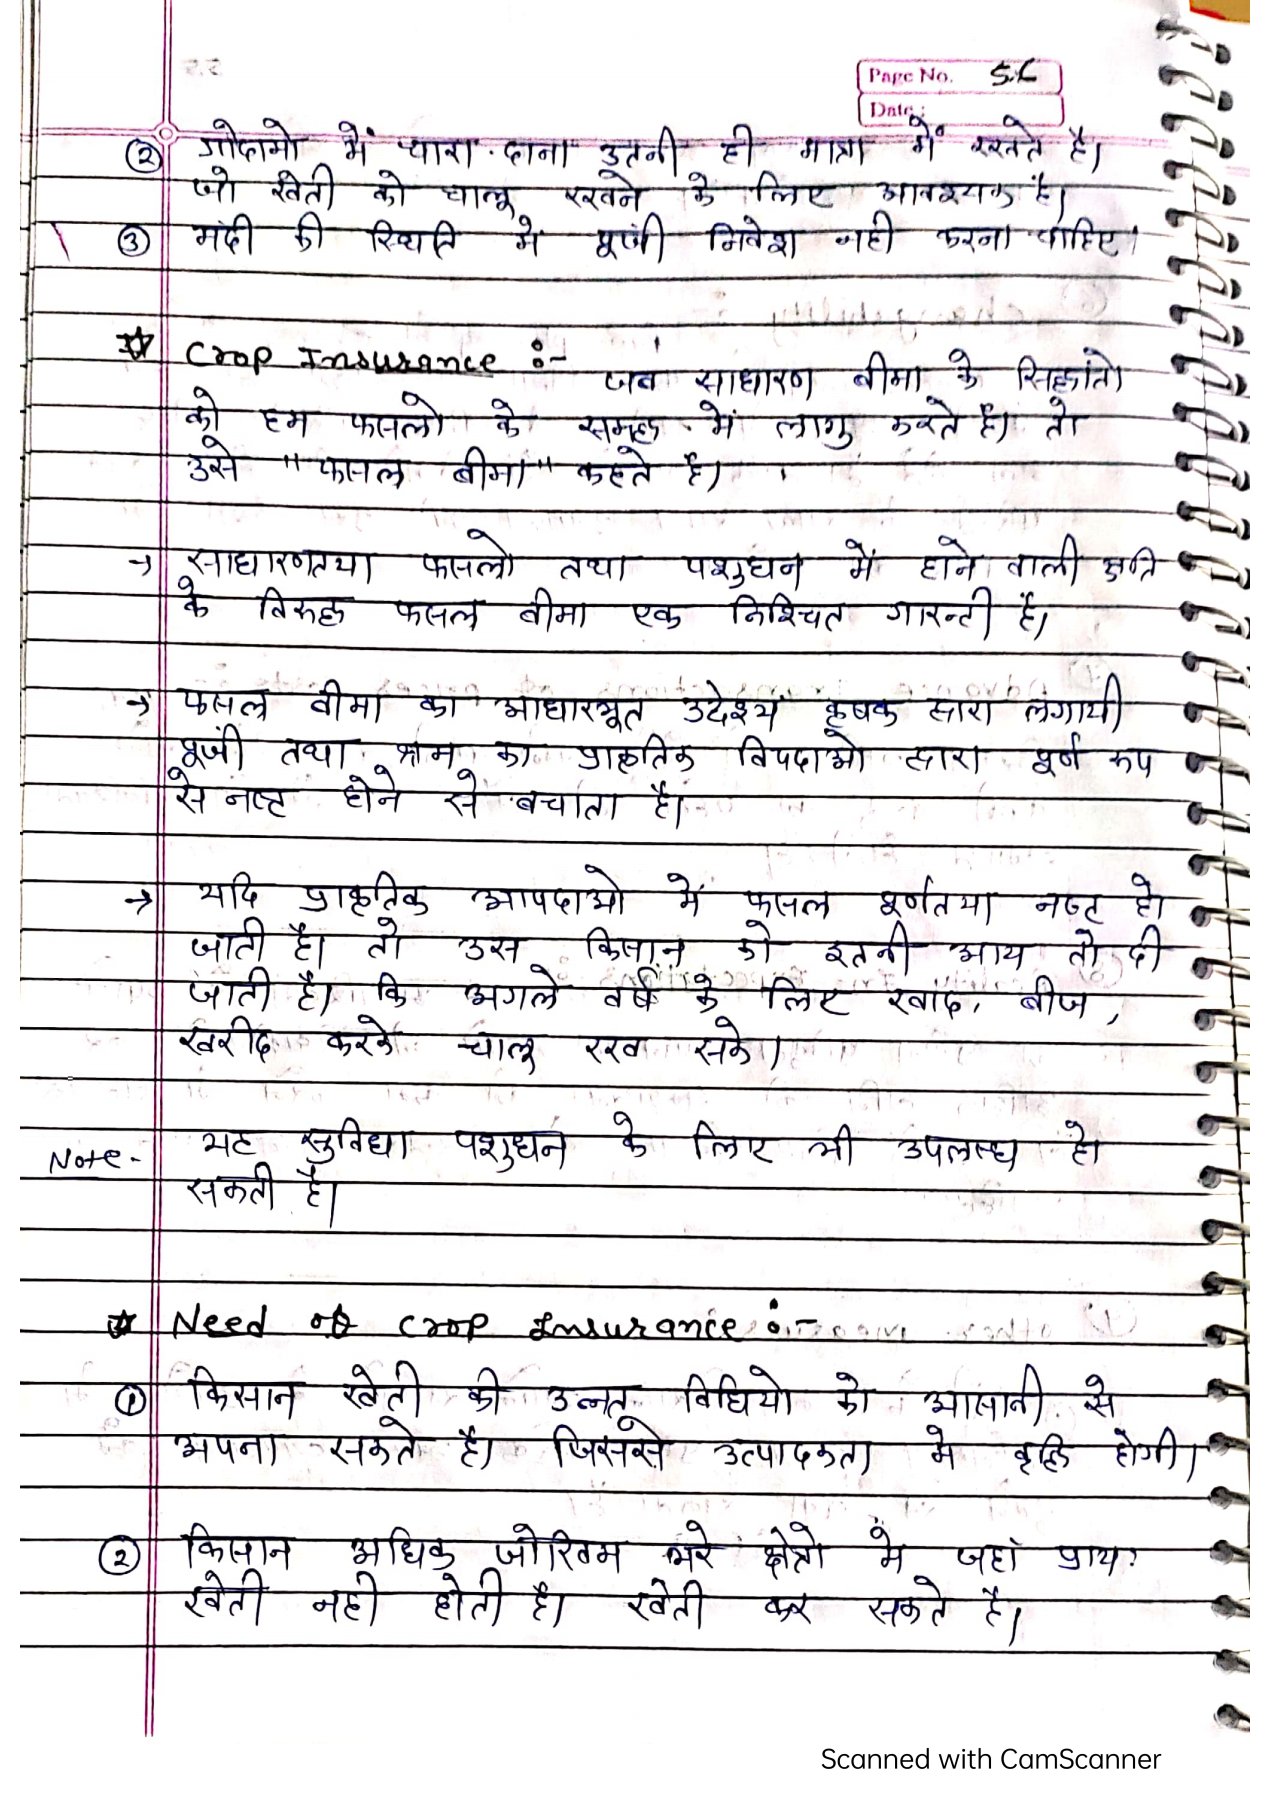 Page No. 56
Date :
② गोदामो में चारा. दाना उतनी ही मात्रा में रखते है।
जो खेती को चालू रखने के लिए आवश्यक है।
③ मंदी की स्थिति में पूंजी निवेश नही करना चाहिए।
☆ Crop Insurance :-
जब साधारण बीमा के सिद्धांतो
को हम फसलो के समूह में लागु करते है। तो
उसे "फसल बीमा" कहते है।
→ साधारणतया फसलो तथा पशुधन में होने वाली क्षति
के विरूद्ध फसल बीमा एक निश्चित गारन्टी है।
→ फसल बीमा का आधारभूत उदेश्य कृषक द्वारा लगायी
पूंजी तथा श्रम का प्राकृतिक विपदाओ द्वारा पूर्ण रूप
से नष्ट होने से बचाता है।
→ यदि प्राकृतिक आपदाओ में फसल पूर्णतया नष्ट हो
जाती है। तो उस किसान को इतनी आय तो दी
जाती है। कि अगले वर्ष के लिए खाद, बीज,
खरीद करके चालू रख सके।
Note- यह सुविधा पशुधन के लिए भी उपलब्ध हो
सकती है।
☆ Need of Crop Insurance :-
① किसान खेती की उन्नत विधियो को आसानी से
अपना सकते है। जिससे उत्पादकता मे वृद्धि होगी।
② किसान अधिक जोखिम भरे क्षेत्रो में जहां प्रायः
खेती नही होती है। खेती कर सकते है।
Scanned with CamScanner